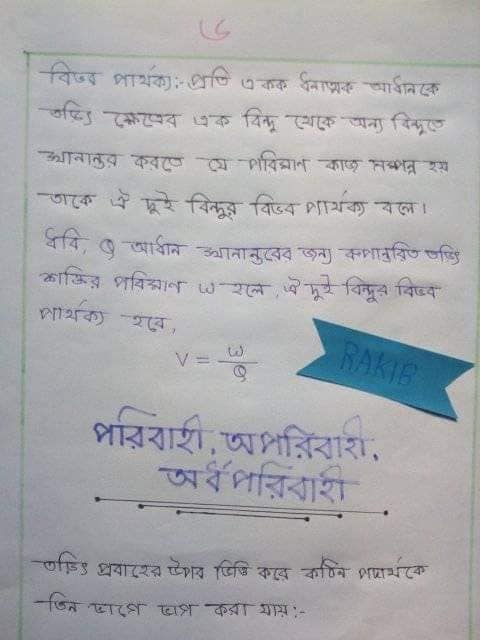 ৬
বিভব পার্থক্য:- প্রতি একক ধনাত্মক আধানকে
তড়িৎ ক্ষেত্রের এক বিন্দু থেকে অন্য বিন্দুতে
স্থানান্তর করতে যে পরিমাণ কাজ সম্পন্ন হয়
তাকে ঐ দুই বিন্দুর বিভব পার্থক্য বলে।
ধরি, Q আধান স্থানান্তরের জন্য রূপান্তরিত তড়িৎ
শক্তির পরিমাণ W হলে, ঐ দুই বিন্দুর বিভব
পার্থক্য হবে,
V = W/Q
RAKIB
পরিবাহী, অপরিবাহী,
অর্ধপরিবাহী
তড়িৎ প্রবাহের উপর ভিত্তি করে কঠিন পদার্থকে
তিন ভাগে ভাগ করা যায়:-